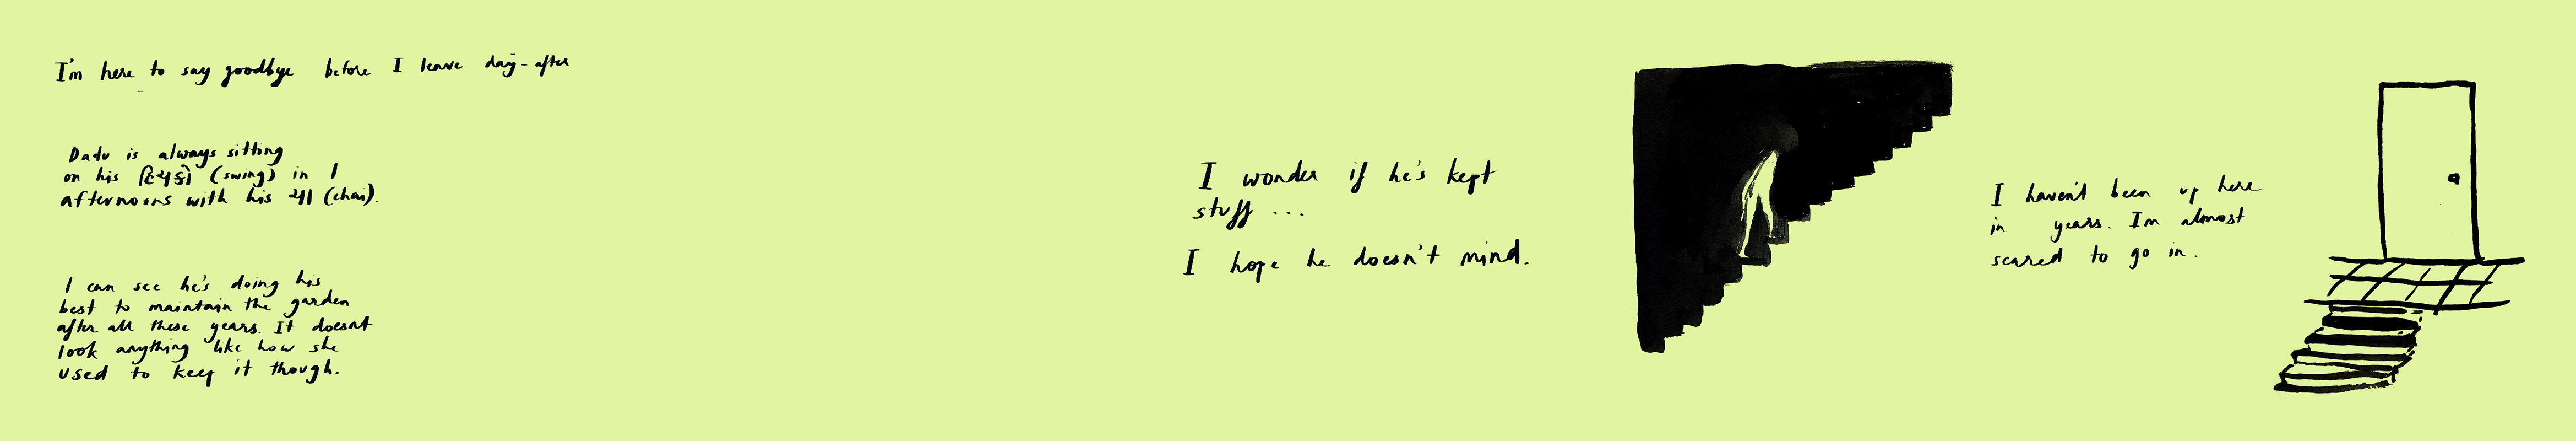 I'm here to say goodbye before I leave day-after
Dadu is always sitting
on his હિંચકો (swing) in
afternoons with his ચા (chai).
I can see he's doing his
best to maintain the garden
after all these years. It doesnt
look anything like how she
used to keep it though.
I wonder if he's kept
stuff ...
I hope he doesn't mind.
I haven't been up here
in years. Im almost
scared to go in.